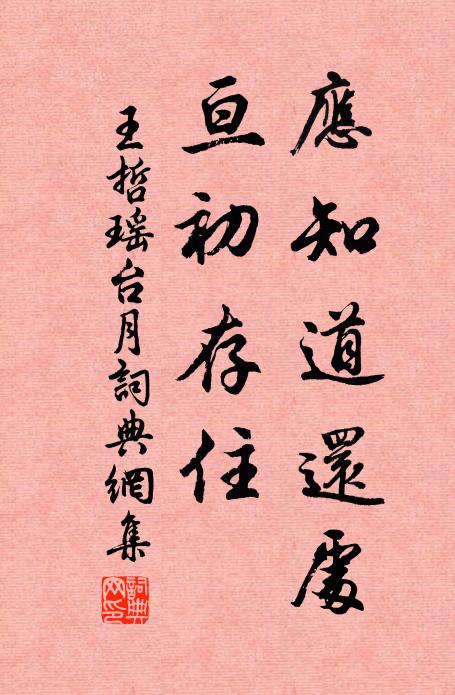 應知道還處
亘初存住
王哲瑶台月詞典網集
詞典网印